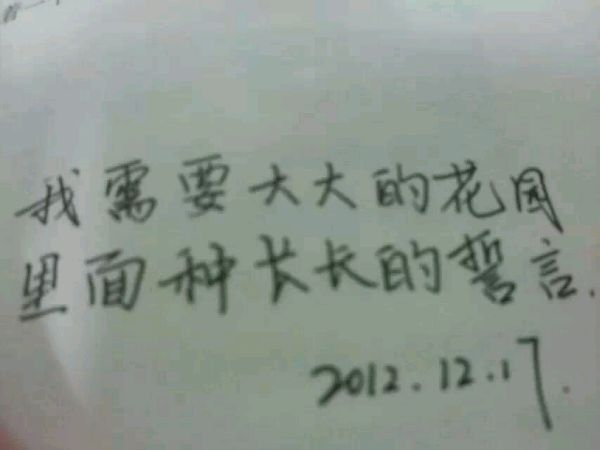 我需要大大的花园
里面种长长的誓言.
2012.12.17.